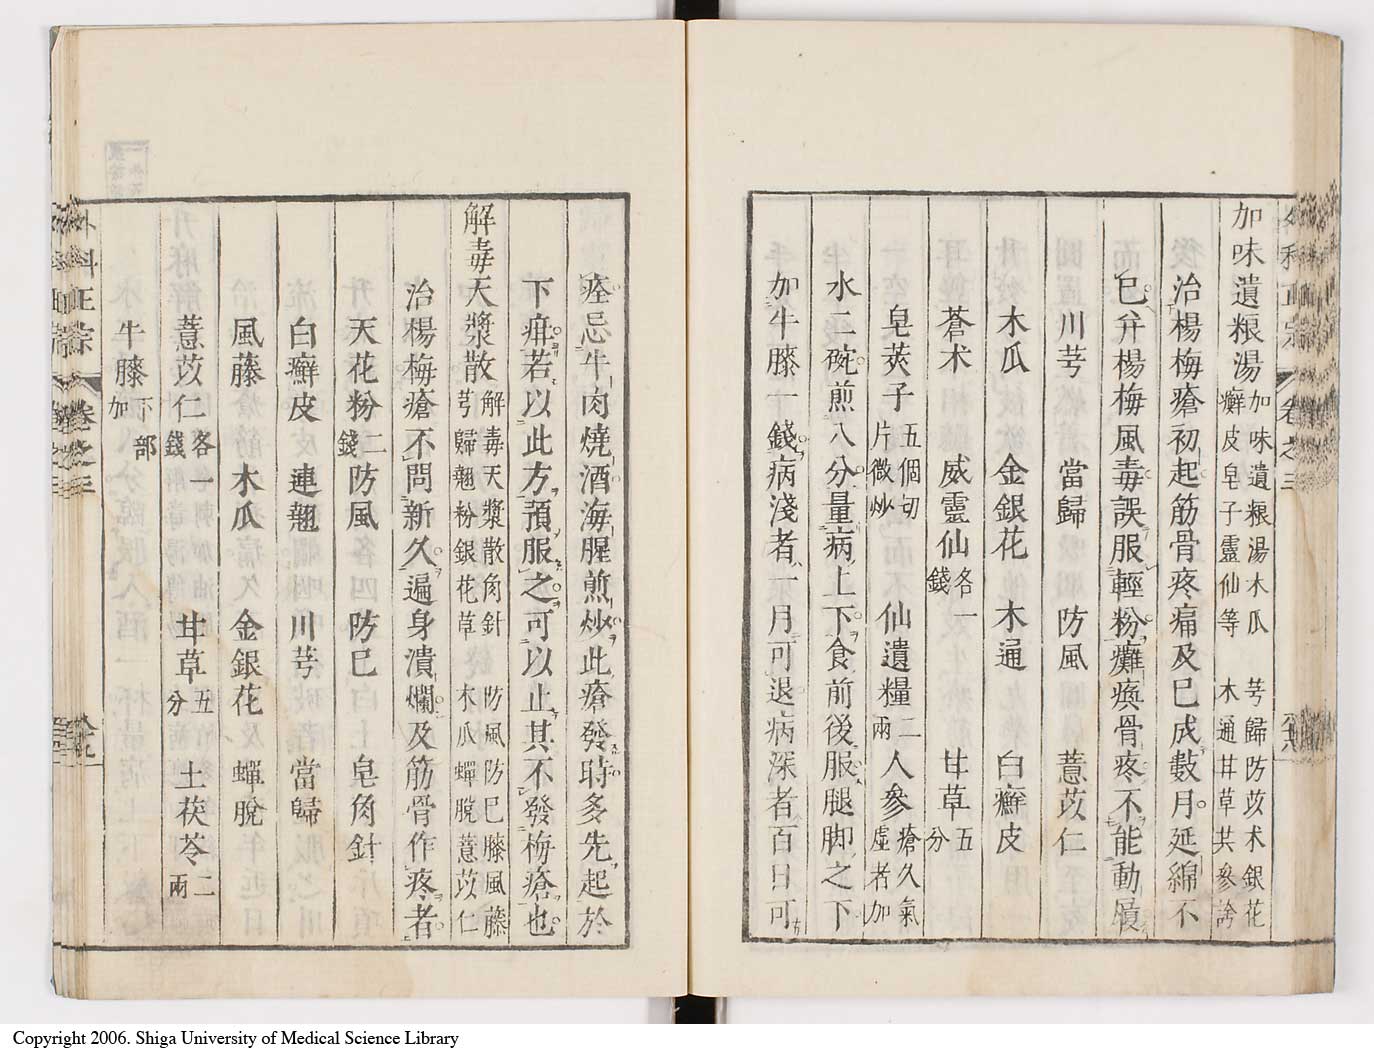 加味遺粮湯 加味遺粮湯木瓜 芎歸防苡术銀花 癬皮皂子靈仙等 木通甘草共參誇
治楊梅瘡初起筋骨疼痛及巳成數月延綿不
已并楊梅風毒誤服輕粉癱瘓骨疼不能動履
川芎 當歸 防風 薏苡仁
木瓜 金銀花 木通 白癬皮
蒼术 威靈仙 各一錢 甘草 五分
皂莢子 五個切片微炒 仙遺糧 二兩 人參 瘡久氣虛者加
水二碗煎八分量病上下食前後服腿脚之下
加牛膝一錢病淺者一月可退病深者百日可
痊忌牛肉燒酒海腥煎炒此瘡發時多先起於
下疳若以此方預服之可以止其不發梅瘡也
解毒天漿散 解毒天漿散角針 防風防巳藤風藤 芎歸翹粉銀花草 木瓜蟬脫薏苡仁
治楊梅瘡不問新久遍身潰爛及筋骨作疼者
天花粉 二錢 防風 防巳 皂角針
白癬皮 連翹 川芎 當歸
風藤 木瓜 金銀花 蟬脫
薏苡仁 各一錢 甘草 五分 土茯苓 二兩
牛膝 下部加
外科正宗 卷之三
Copyright 2006. Shiga University of Medical Science Library